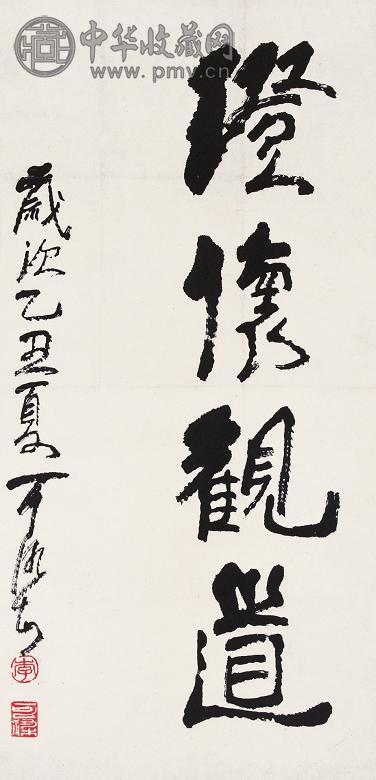 中华收藏网
www.pmv.cn
澄懷觀道
歲次乙丑夏可染书
李
可染